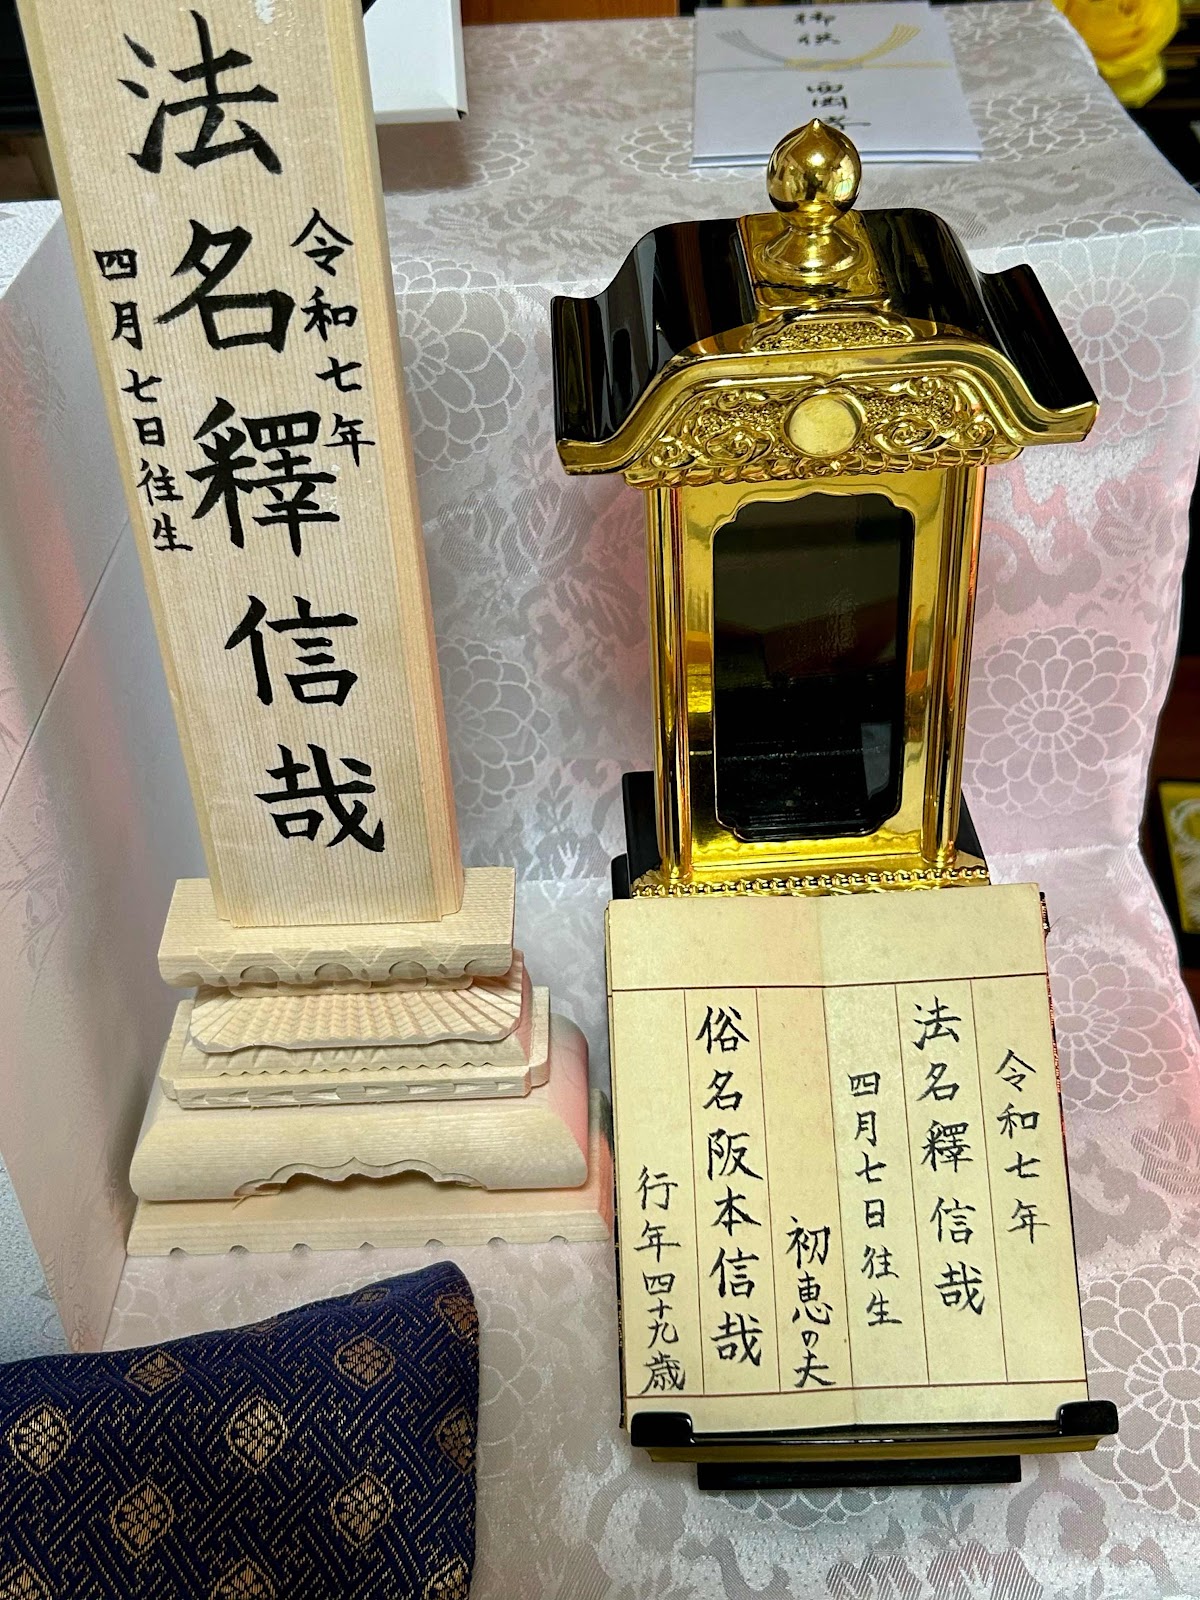 令和七年
法名釋信哉
四月七日往生
令和七年
法名釋信哉
四月七日往生
初恵の夫
俗名阪本信哉
行年四十九歳
御供